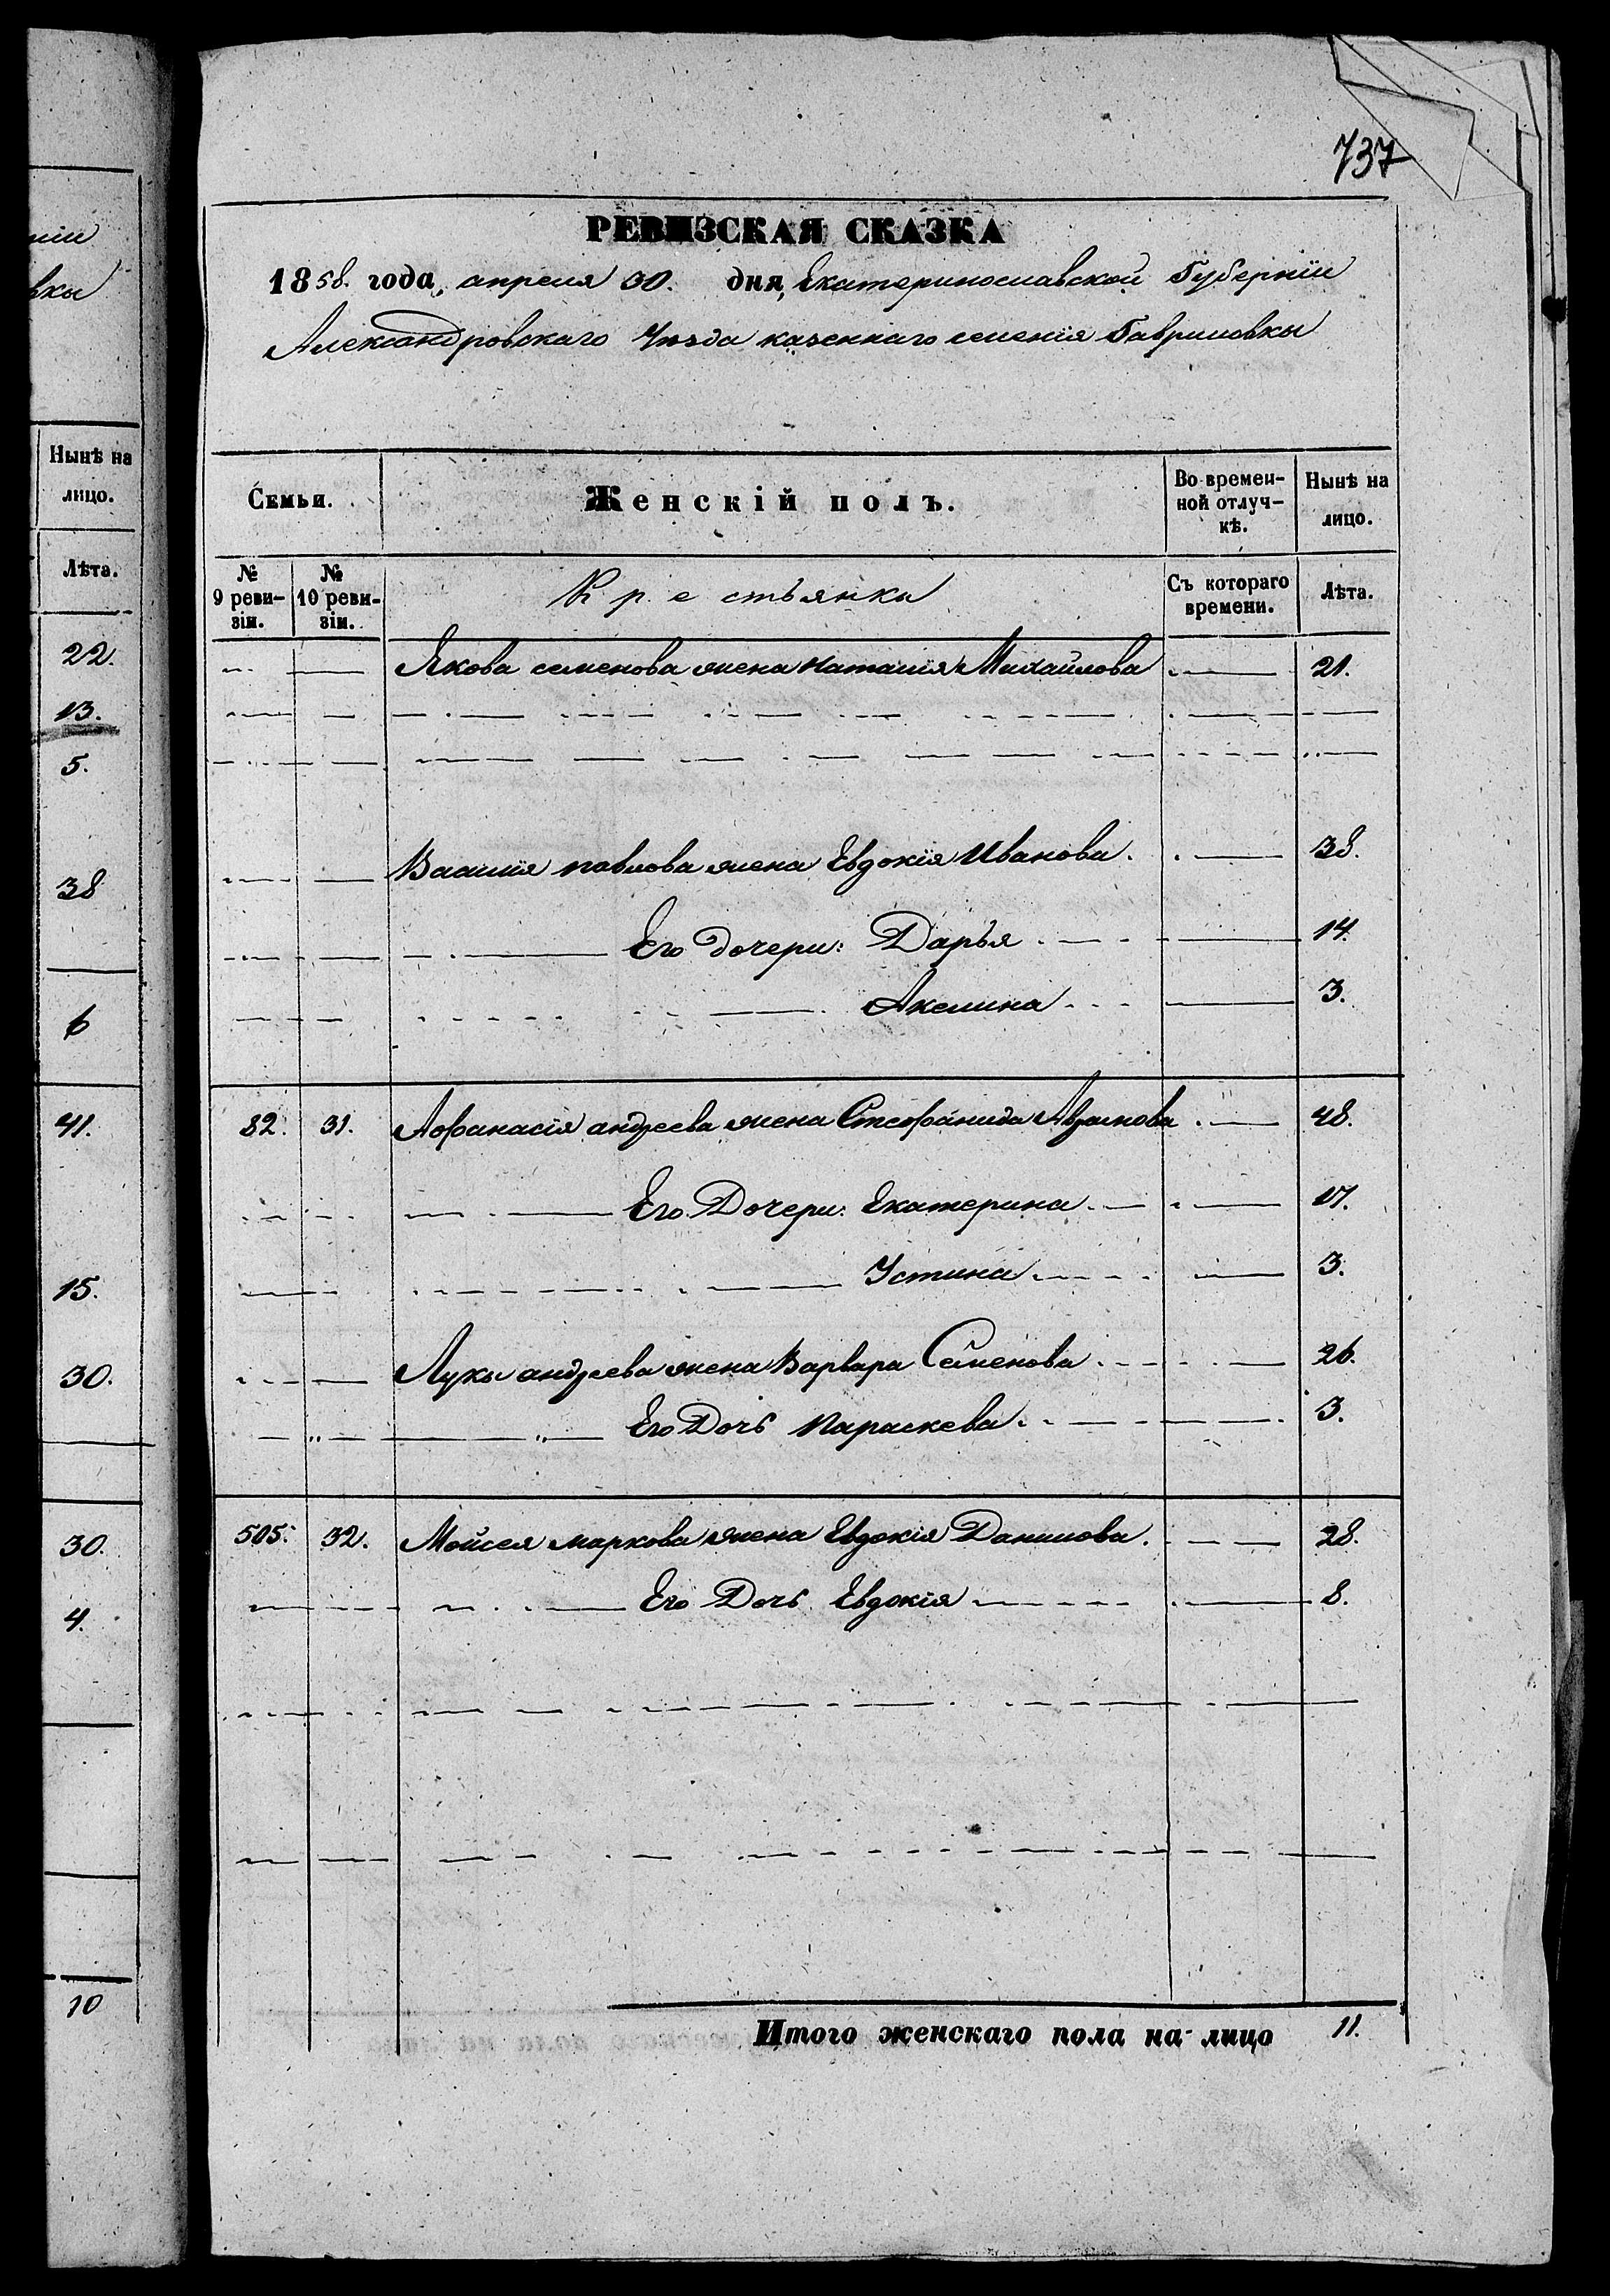 ніи
вки
Нынѣ на
лицо.
Лѣта.
22.
13.
5.
38
6
41.
15.
30.
30.
4.
10
737
РЕВИЗСКАЯ СКАЗКА
1858. года, апреля 30. дня, Екатеринославской Губерніи
Александровскаго Уѣзда казеннаго селенія Гавриловки
Семьи. Женскій полъ. Во времен-ной отлуч-кѣ. Нынѣ на лицо.
№ 9 реви-зіи. № 10 реви-зіи. Крестьянки Съ котораго времени. Лѣта.
Якова семенова жена Наталія Михайлова 21.
Василія павлова жена Евдокія Иванова. 38.
Его дочери: Дарья 14.
Акелина 3.
82. 31. Афанасія андреева жена Стефанида Аврамова 48.
Его Дочери: Екатерина 17.
Устина 3.
Луки андреева жена Варвара Семенова 26.
Его Дочь Параскева 3.
505. 32. Мойсея маркова жена Евдокія Данилова. 28.
Его Дочь Евдокія 8.
Итого женскаго пола на-лицо 11.